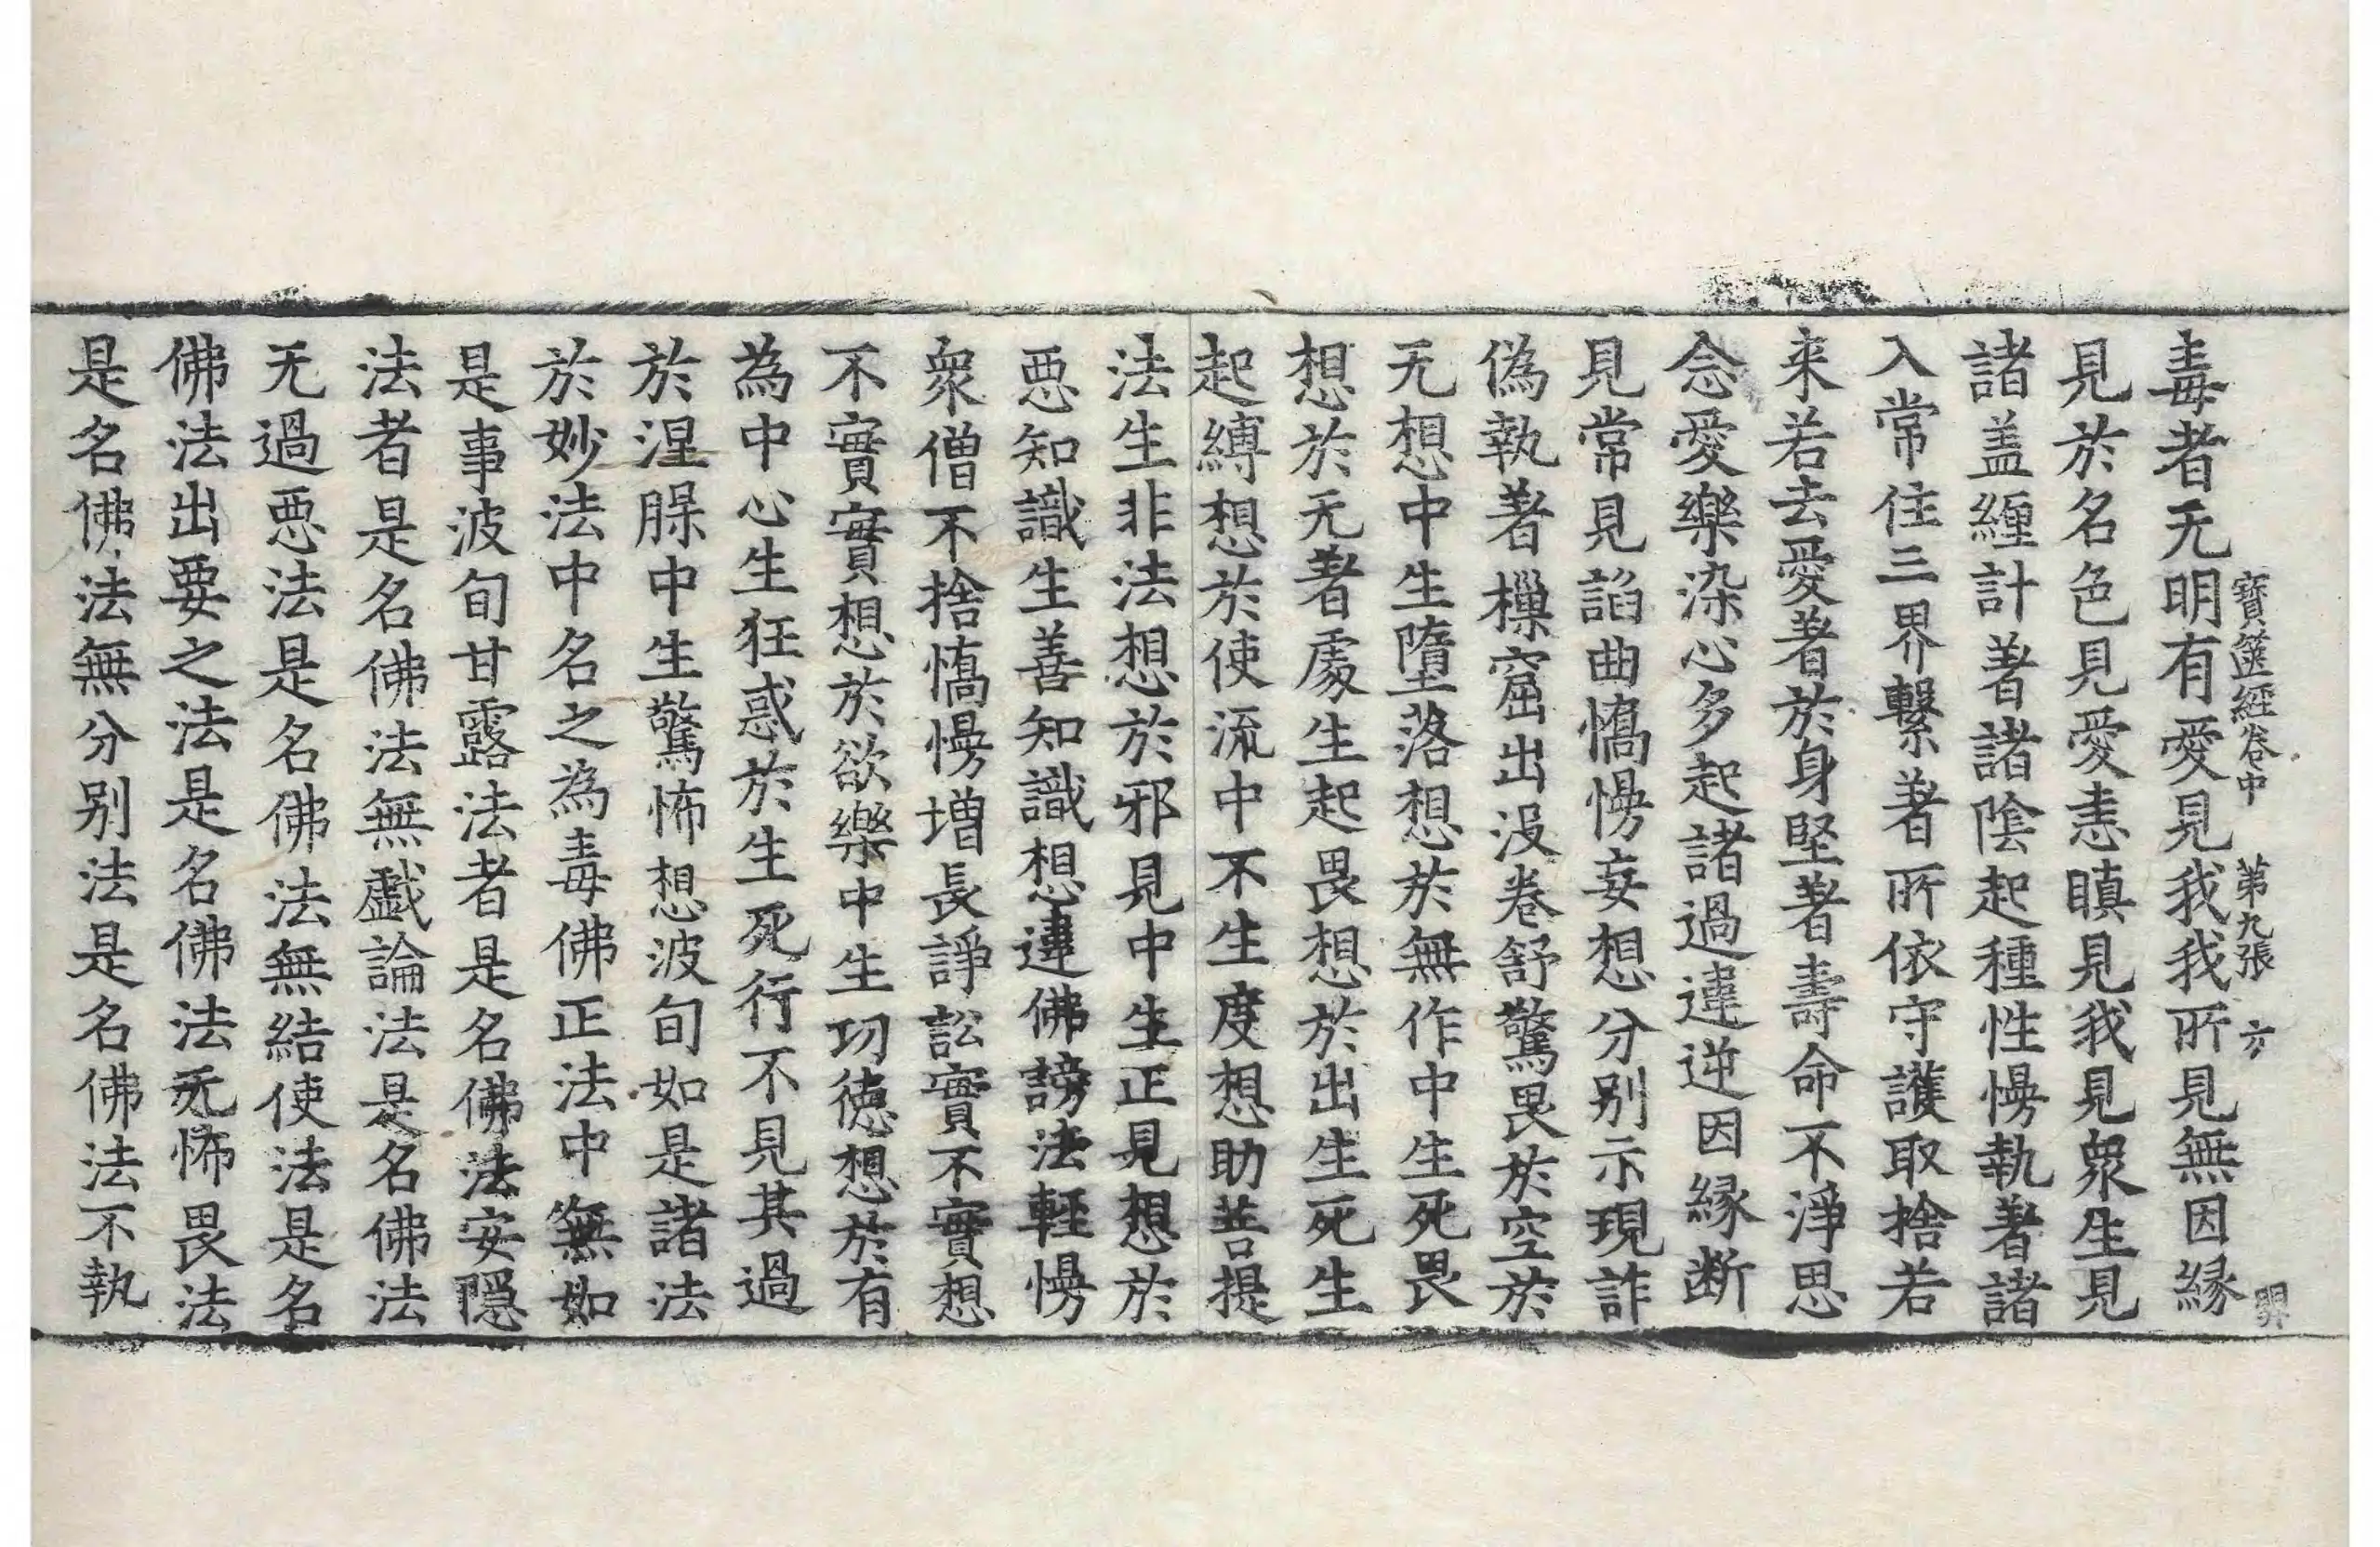 寶篋經卷中　第九張　六
毒者无明有愛見我我所見無因緣
見於名色見愛恚瞋見我見衆生見
諸盖纏計著諸陰起種性慢執著諸
入常住三界繫著所依守護取捨若
来若去愛著於身堅著壽命不淨思
念愛樂染心多起諸過違逆因緣断
見常見諂曲憍慢妄想分别示現詐
偽執著樔窟出没卷舒驚畏於空於
无想中生墮落想於無作中生死畏
想於无著處生起畏想於出生死生
起縛想於使流中不生度想助菩提
法生非法想於邪見中生正見想於
惡知識生善知識想違佛謗法輕慢
衆僧不捨憍慢増長諍訟實不實想
不實實想於欲樂中生功德想於有
為中心生狂惑於生死行不見其過
於涅槃中生驚怖想波旬如是諸法
於妙法中名之為毒佛正法中無如
是事波旬甘露法者是名佛法安隱
法者是名佛法無戲論法是名佛法
无過惡法是名佛法無結使法是名
佛法出要之法是名佛法无怖畏法
是名佛法無分别法是名佛法不執